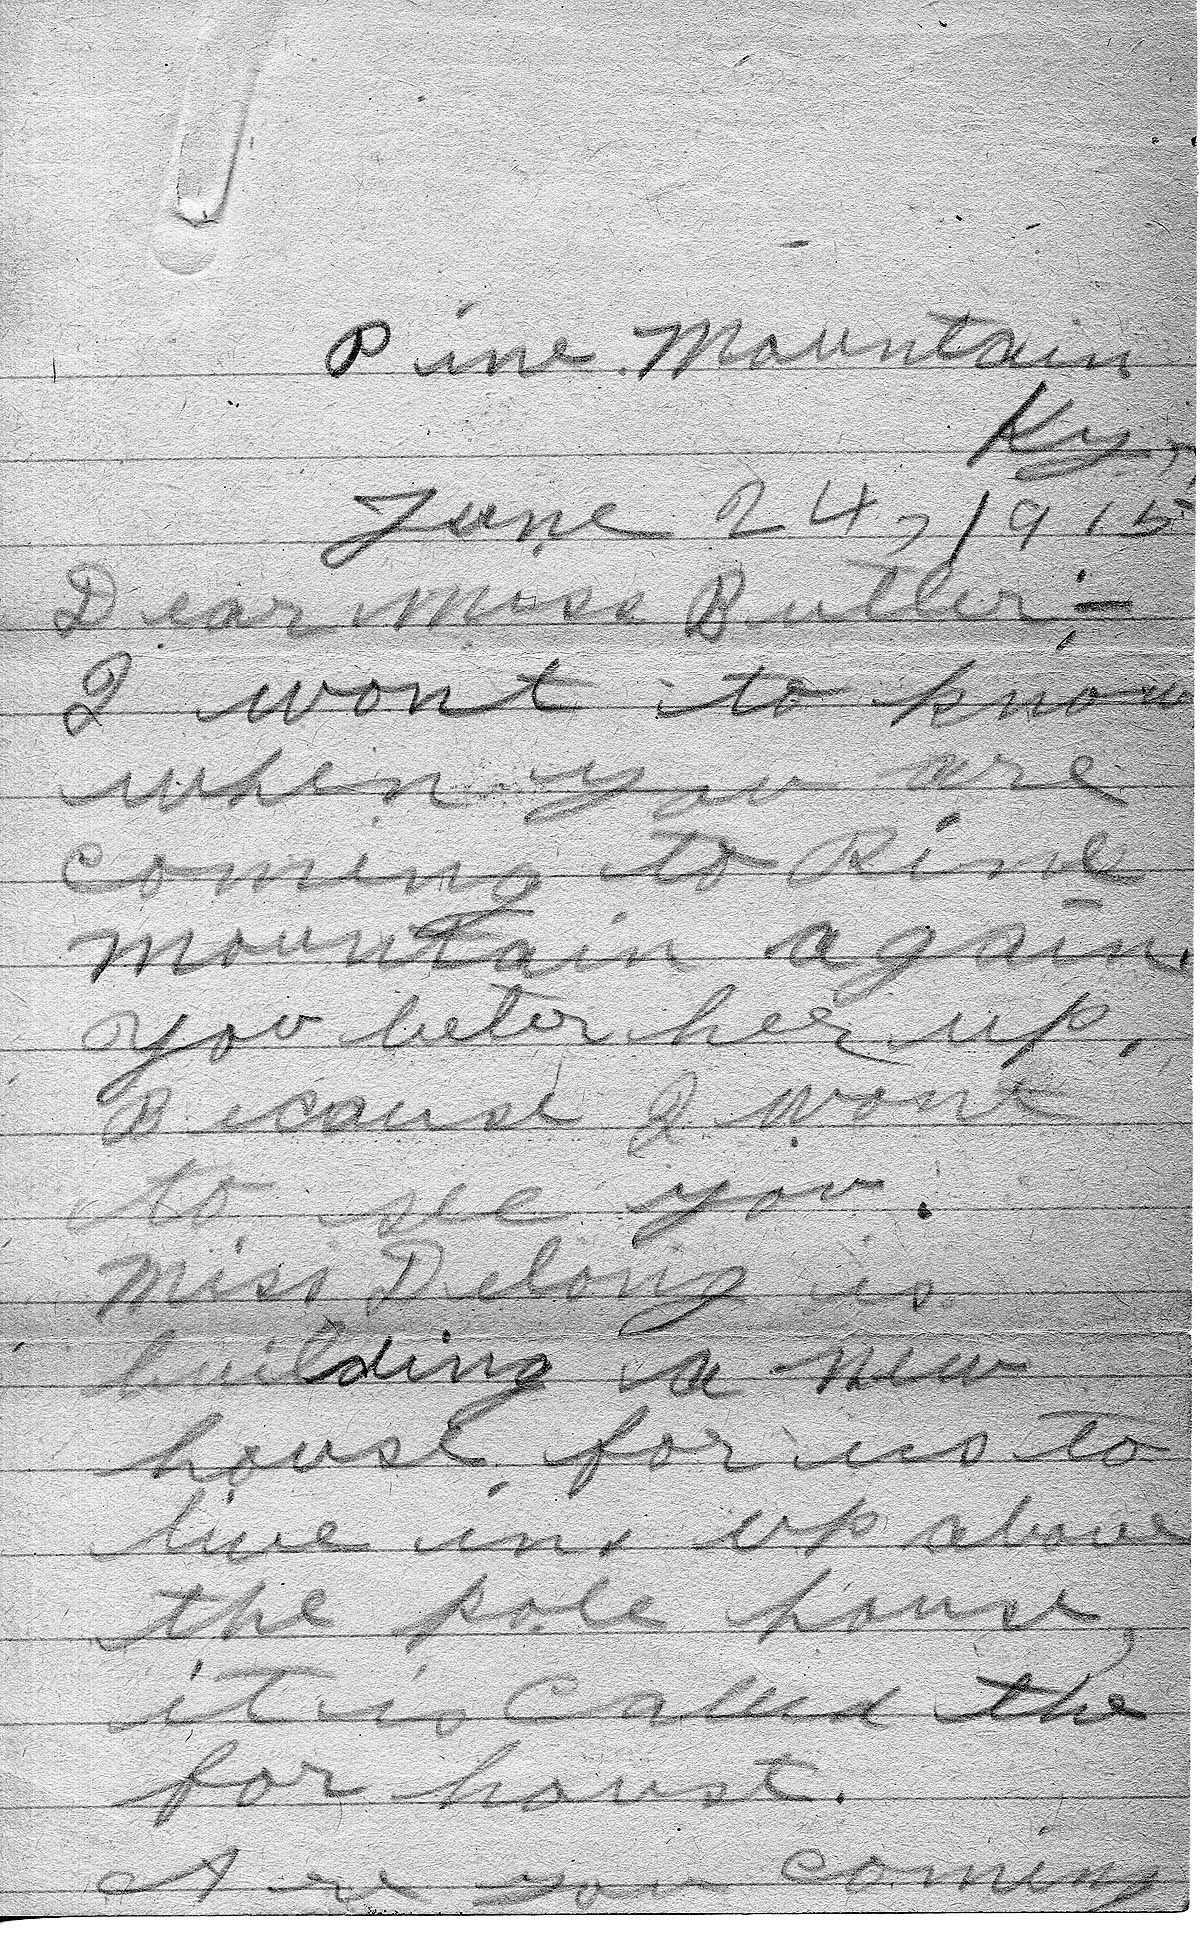 Pine Mountain
Ky.,
June 24, 1915
Dear Miss Butler:-
I wont to know
when you are
coming to Pine
mountain again.
you beter her up.
Because I wont
to see you.
Miss Delong is
building a new
house for us to
live in, up above
the pole house,
it is Called the
far house.
Are you coming